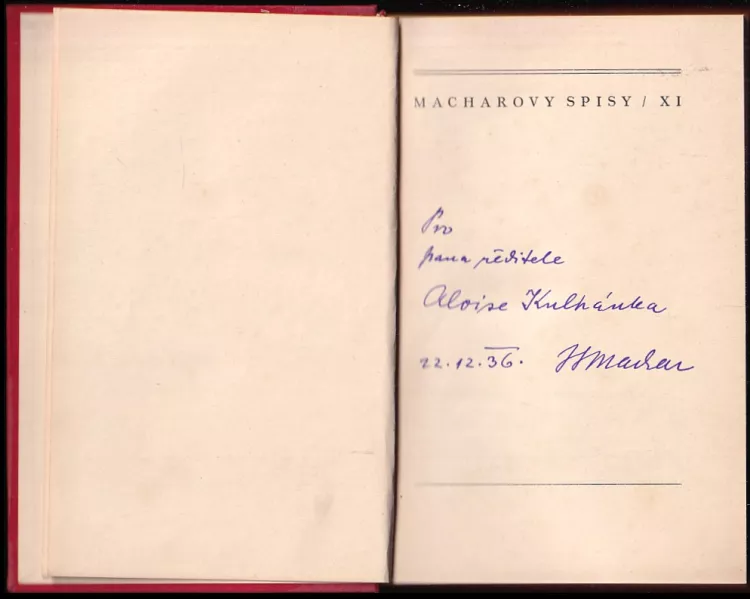 MACHAROVY SPISY / XI
Pro
pana ředitele
Aloise Kulhánka
22.12.36. JSMachar